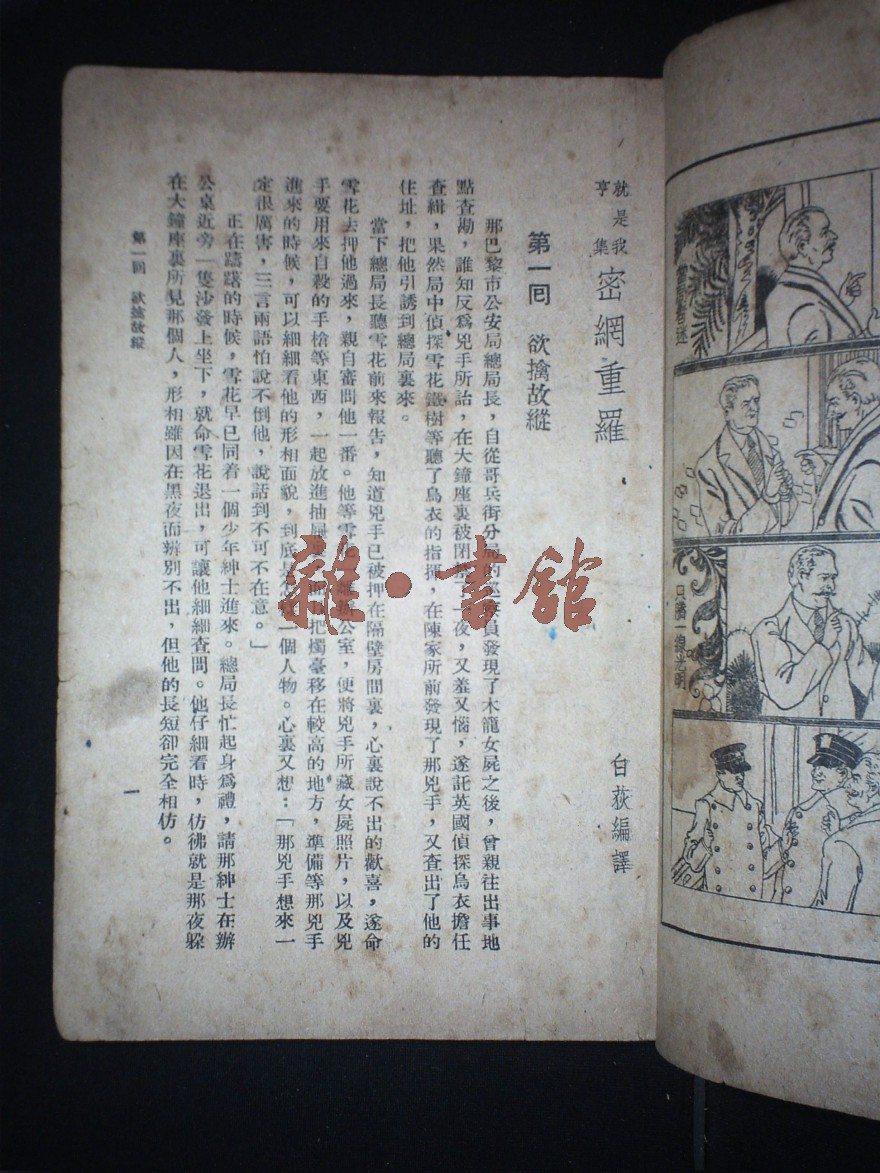 就是我
亨集
密網重羅
白荻編譯
第一回 欲擒故縱
那巴黎市公安局總局長，自從哥兵街分局的巡察員發現了木籠女屍之後，曾親往出事地
點查勘，誰知反爲兇手所詒，在大鐘座裏被閉一夜，又羞又惱，遂託英國偵探烏衣擔任
查緝，果然局中偵探雪花鐵樹等聽了烏衣的指揮，在陳家所前發現了那兇手，又查出了他的
住址，把他引誘到總局裏來。
當下總局長聽雪花前來報告，知道兇手已被押在隔壁房間裏，心裏說不出的歡喜，遂命
雪花去押他過來，親自審問他一番。他等雪花辦公室，便將兇手所藏女屍照片，以及兇
手要用來自殺的手槍等東西，一起放進抽屜把燭臺移在較高的地方，準備等那兇手
進來的時候，可以細細看他的形相面貌，到底是一個人物。心裏又想：「那兇手想來一
定很厲害，三言兩語怕說不倒他，說話到不可不在意。」
正在躊躇的時候，雪花早已同着一個少年紳士進來。總局長忙起身爲禮，請那紳士在辦
公桌近旁一隻沙發上坐下，就命雪花退出，可讓他細細查問。他仔細看時，仿彿就是那夜躲
在大鐘座裏所見那個人，形相雖因在黑夜面辨別不出，但他的長短卻完全相仿。
第一回 欲擒故縱
一
只隔一線光明
雜·書館